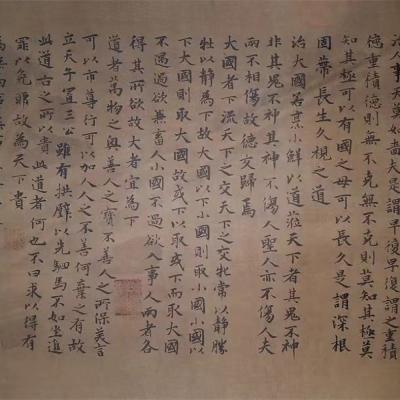 治人事天莫如嗇夫是謂早復早復謂之重積
德重積德則無不克無不克則莫知其極莫
知其極可以有國之母可以長久是謂深根
固蒂長生久視之道
治大國若烹小鮮以道莅天下者其鬼不神
非其鬼不神其神不傷人聖人亦不傷人夫
兩不相傷故德交歸焉
大國者下流天下之交天下之交牝常以靜勝
牡以靜為下故大國以下小國則取小國小國以
下大國則取大國故或下以取或下而取大國
不過欲兼畜人小國不過欲入事人兩者各
得其所欲故大者宜為下
道者萬物之奧善人之寶不善人之所保美言
可以市尊行可以加人人之不善何棄之有故
立天子置三公雖有拱璧以先駟馬不如坐進
此道古之所以貴此道者何也不曰求以得有
罪以免耶故為天下貴